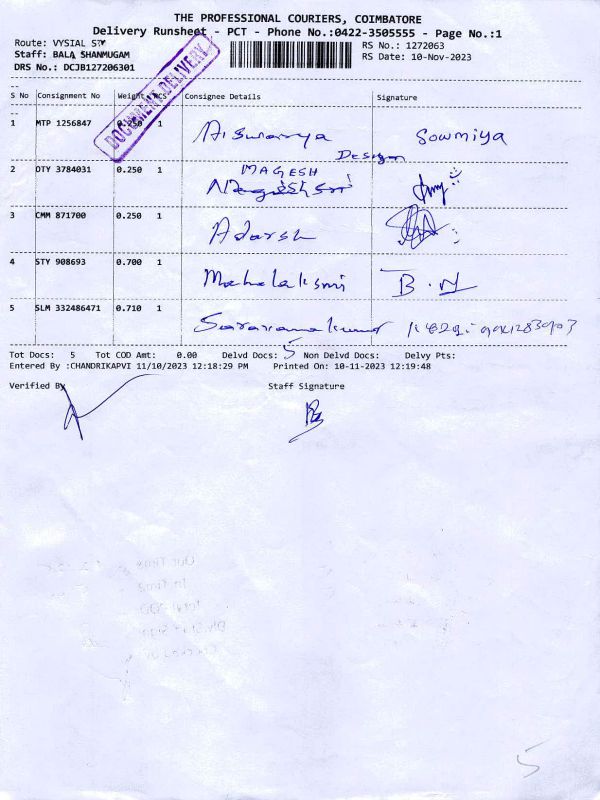 THE PROFESSIONAL COURIERS, COIMBATORE
Delivery Runsheet - PCT - Phone No.:0422-3505555 - Page No.:1
Route: VYSIAL ST
RS No.: 1272063
Staff: BALA SHANMUGAM
RS Date: 10-Nov-2023
DRS No.: DCJB127206301
DOCUMENT DELIVERY
S No Consignment No Weight PCS Consignee Details Signature
1 MTP 1256847 0.250 1 Aiswarya Sowmiya
Design
2 DTY 3784031 0.250 1 MAGESH
3 CMM 871700 0.250 1 Adarsh
4 STY 908693 0.700 1 Mahalaksmi B.N
5 SLM 332486471 0.710 1 Saravanakumar
Tot Docs: 5 Tot COD Amt: 0.00 Delvd Docs: 5 Non Delvd Docs: Delvy Pts:
Entered By :CHANDRIKAPVI 11/10/2023 12:18:29 PM Printed On: 10-11-2023 12:19:48
Verified By Staff Signature
5